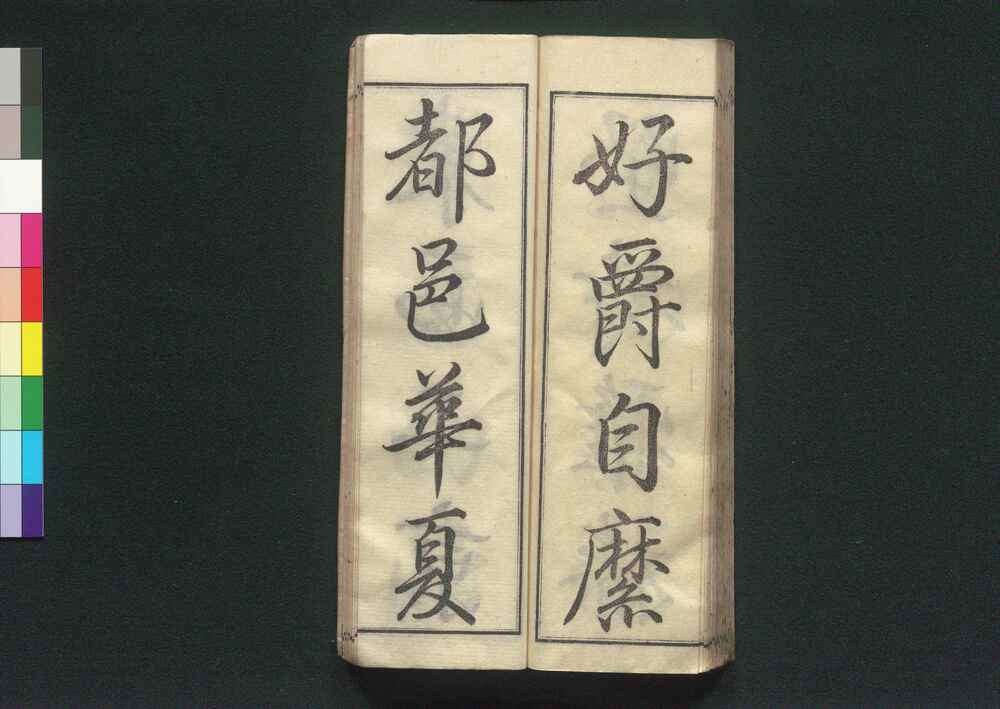 好爵自縻
都邑華夏